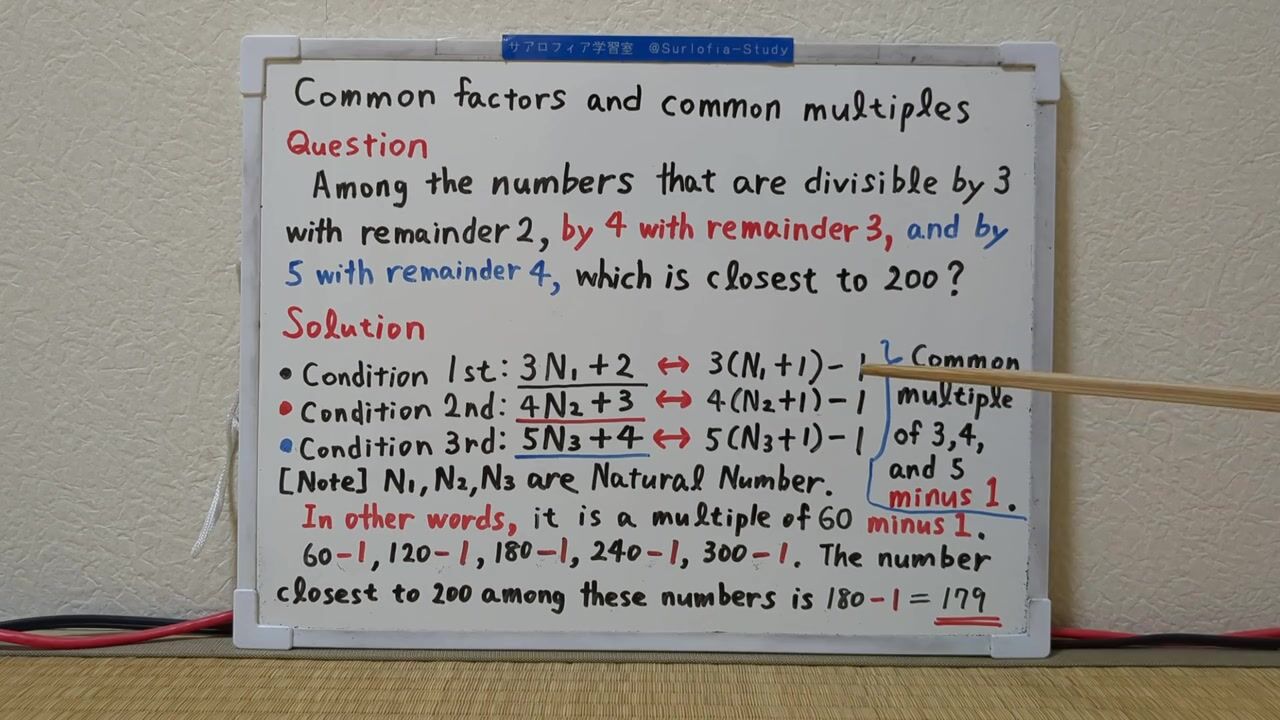 サアロフィア学習室 @Surlofia-Study
Common factors and common multiples
Question
Among the numbers that are divisible by 3
with remainder 2, by 4 with remainder 3, and by
5 with remainder 4, which is closest to 200?
Solution
• Condition 1st: 3N₁+2 ↔ 3(N₁+1)-1
• Condition 2nd: 4N₂+3 ↔ 4(N₂+1)-1
• Condition 3rd: 5N₃+4 ↔ 5(N₃+1)-1
Common
multiple
of 3,4,
and 5
minus 1.
[Note] N₁,N₂,N₃ are Natural Number.
In other words, it is a multiple of 60 minus 1.
60-1, 120-1, 180-1, 240-1, 300-1. The number
closest to 200 among these numbers is 180-1=179